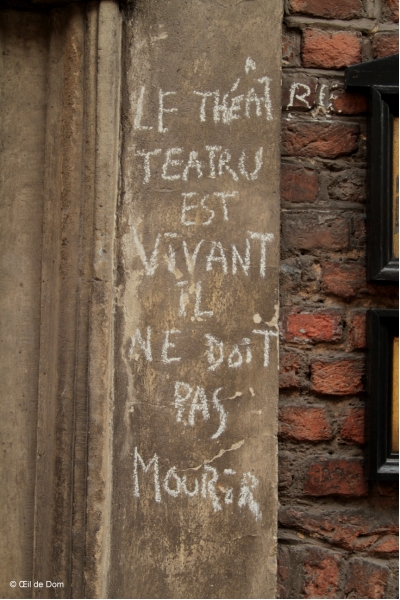 LE THÉÂTRE
TEATRU
EST
VIVANT
IL
NE DOIT
PAS
MOURIR
© Œil de Dom